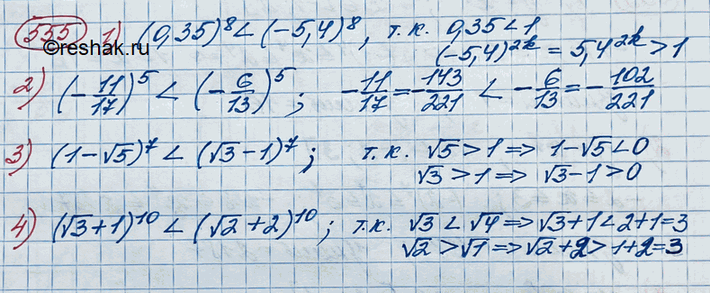 555 1) (0,35)⁸ < (-5,4)⁸, т.к. 0,35 < 1
©reshak.ru
(-5,4)²ᵏ = 5,4²ᵏ > 1
2) (-11/17)⁵ < (-6/13)⁵; -11/17 = -143/221 < -6/13 = -102/221
3) (1-√5)⁷ < (√3-1)⁷; т.к. √5 > 1 ⇒ 1-√5 < 0
√3 > 1 ⇒ √3-1 > 0
4) (√3+1)¹⁰ < (√2+2)¹⁰; т.к. √3 < √4 ⇒ √3+1 < 2+1=3
√2 > √1 ⇒ √2+2 > 1+2=3